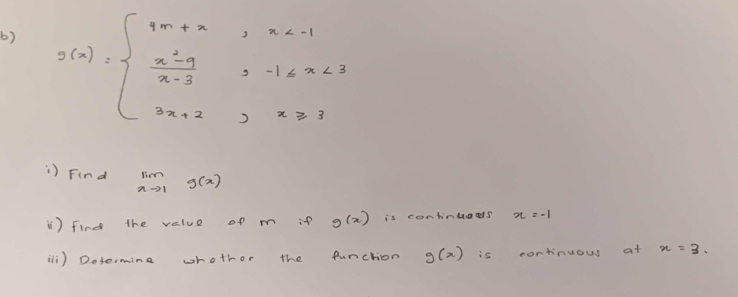 b)
g(x) = { 4m + x , x < -1
x² - 9 / x - 3 , -1 ≤ x < 3
3x + 2 , x ≥ 3
i) Find lim x→1 g(x)
ii) Find the value of m if g(x) is continuous x = -1
iii) Determine whether the function g(x) is continuous at x = 3.